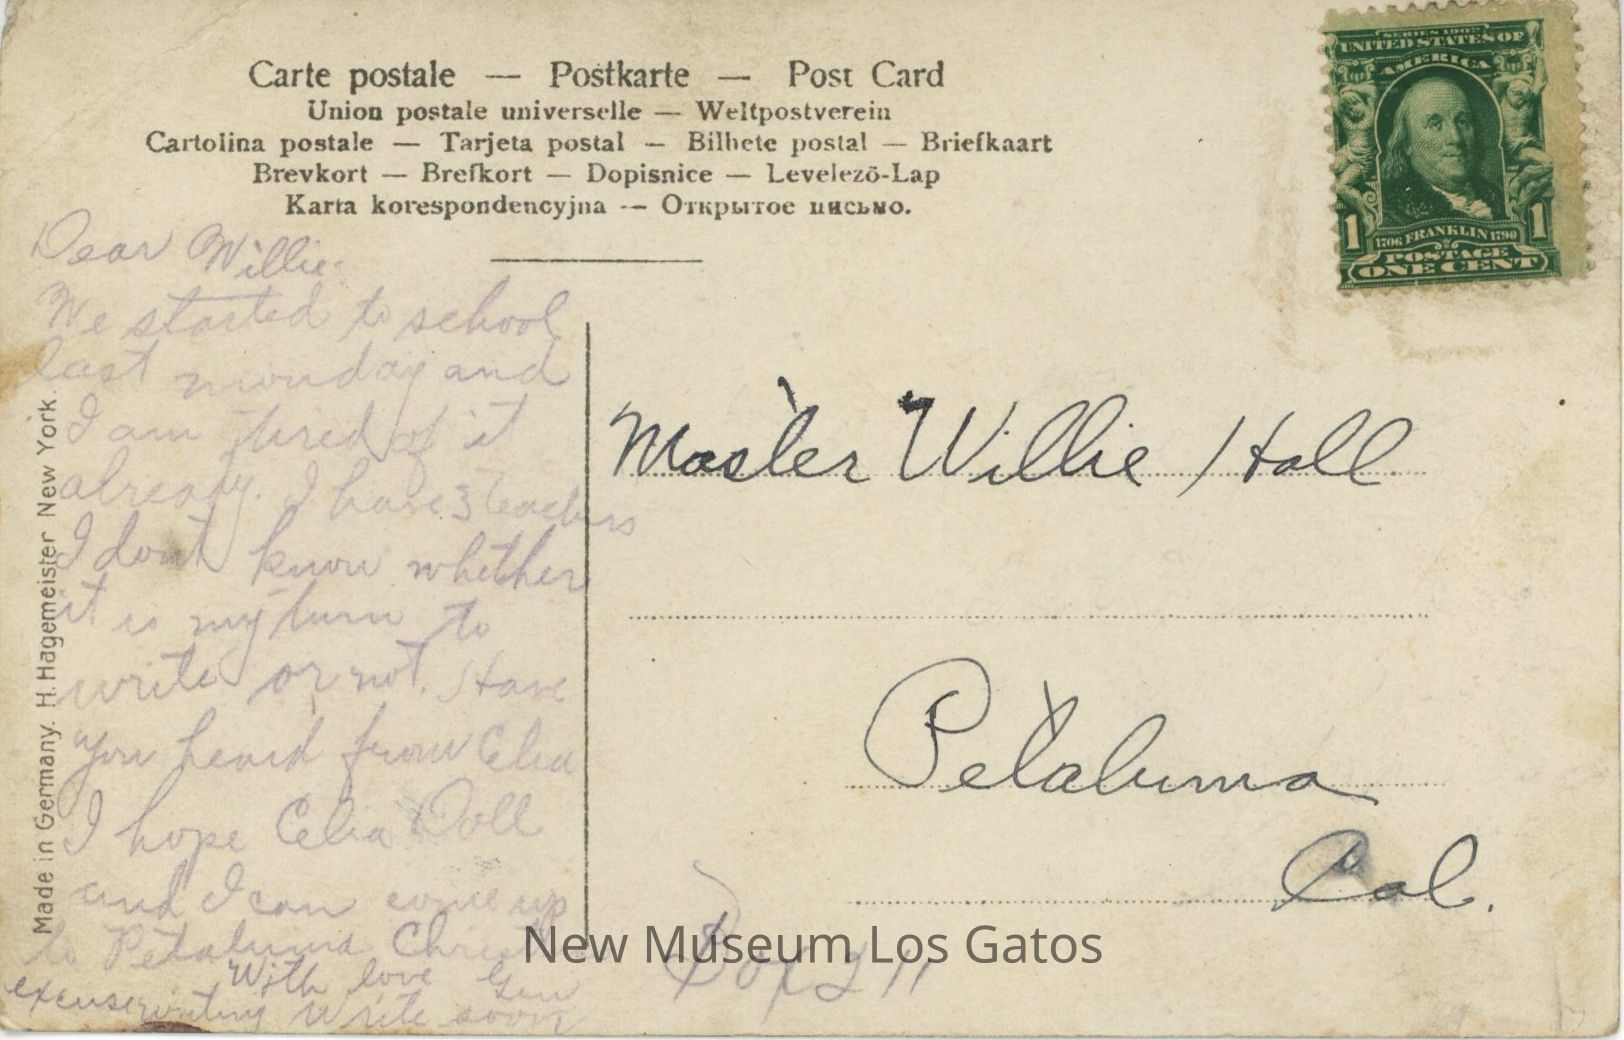 Carte postale — Postkarte — Post Card
Union postale universelle — Weltpostverein
Cartolina postale — Tarjeta postal — Bilhete postal — Briefkaart
Brevkort — Brefkort — Dopisnice — Levelező-Lap
Karta korespondencyjna — Открытое письмо.
SERIES 1902
UNITED STATES OF
AMERICA
1 1
1706 FRANKLIN 1790
POSTAGE
ONE CENT
Dear Willie.
We started to school
last monday and
I am tired of it
already. I have 3 teachers
I dont know whether
it is my turn to
write or not. Have
you heard from Celia
I hope Celia Doll
and I can come up
to Petaluma
With love Gen
excuse writing Write soon
Made in Germany. H. Hagemeister New York.
Master Willie Hall
Petaluma
Cal.
Box 211
New Museum Los Gatos